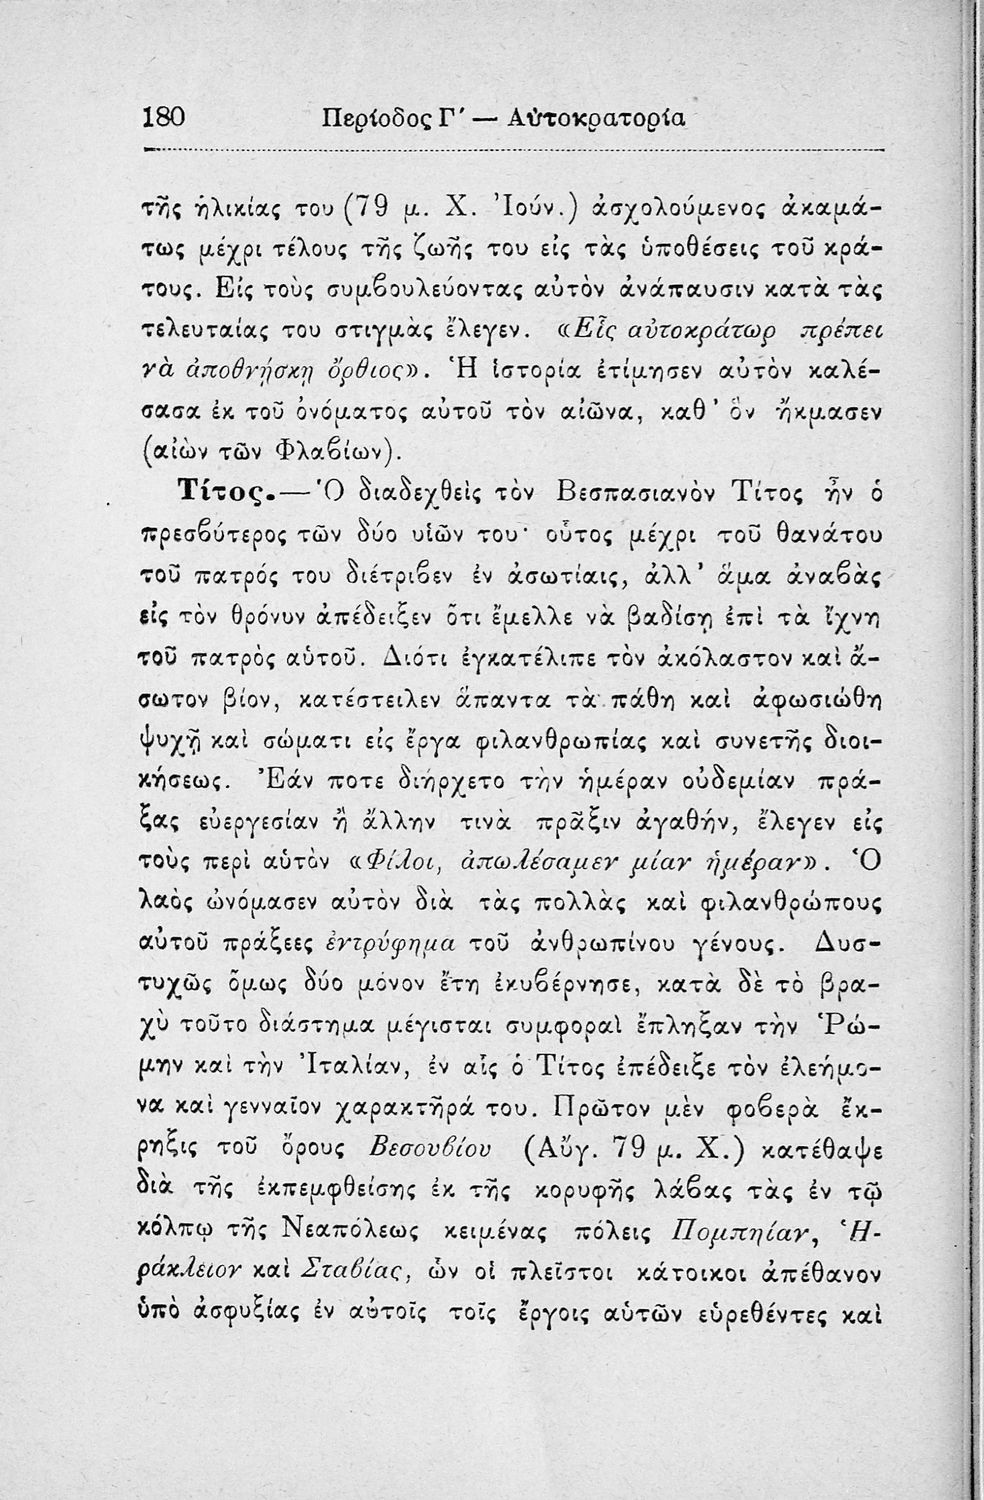 180 Περίοδος Γ΄ — Αὐτοκρατορία
τῆς ἡλικίας του (79 μ. Χ. Ἰούν.) ἀσχολούμενος ἀκαμά-
τως μέχρι τέλους τῆς ζωῆς του εἰς τὰς ὑποθέσεις τοῦ κρά-
τους. Εἰς τοὺς συμβουλεύοντας αὐτὸν ἀνάπαυσιν κατὰ τὰς
τελευταίας του στιγμὰς ἔλεγεν. «Εἷς αὐτοκράτωρ πρέπει
νὰ ἀποθνήσκῃ ὄρθιος». Ἡ ἱστορία ἐτίμησεν αὐτὸν καλέ-
σασα ἐκ τοῦ ὀνόματος αὐτοῦ τὸν αἰῶνα, καθ' ὃν ἤκμασεν
(αἰὼν τῶν Φλαβίων).
Τίτος.— Ὁ διαδεχθεὶς τὸν Βεσπασιανὸν Τίτος ἦν ὁ
πρεσβύτερος τῶν δύο υἱῶν του· οὗτος μέχρι τοῦ θανάτου
τοῦ πατρός του διέτριβεν ἐν ἀσωτίαις, ἀλλ' ἅμα ἀναβὰς
εἰς τὸν θρόνυν ἀπέδειξεν ὅτι ἔμελλε νὰ βαδίσῃ ἐπὶ τὰ ἴχνη
τοῦ πατρὸς αὑτοῦ. Διότι ἐγκατέλιπε τὸν ἀκόλαστον καὶ ἄ-
σωτον βίον, κατέστειλεν ἅπαντα τὰ πάθη καὶ ἀφωσιώθη
ψυχῇ καὶ σώματι εἰς ἔργα φιλανθρωπίας καὶ συνετῆς διοι-
κήσεως. Ἐάν ποτε διήρχετο τὴν ἡμέραν οὐδεμίαν πρά-
ξας εὐεργεσίαν ἢ ἄλλην τινὰ πρᾶξιν ἀγαθήν, ἔλεγεν εἰς
τοὺς περὶ αὑτὸν «Φίλοι, ἀπωλέσαμεν μίαν ἡμέραν». Ὁ
λαὸς ὠνόμασεν αὐτὸν διὰ τὰς πολλὰς καὶ φιλανθρώπους
αὐτοῦ πράξεες ἐντρύφημα τοῦ ἀνθρωπίνου γένους. Δυσ-
τυχῶς ὅμως δύο μόνον ἔτη ἐκυβέρνησε, κατὰ δὲ τὸ βρα-
χὺ τοῦτο διάστημα μέγισται συμφοραὶ ἔπληξαν τὴν Ῥώ-
μην καὶ τὴν Ἰταλίαν, ἐν αἷς ὁ Τίτος ἐπέδειξε τὸν ἐλεήμο-
να καὶ γενναῖον χαρακτῆρά του. Πρῶτον μὲν φοβερὰ ἔκ-
ρηξις τοῦ ὄρους Βεσουβίου (Αὔγ. 79 μ. Χ.) κατέθαψε
διὰ τῆς ἐκπεμφθείσης ἐκ τῆς κορυφῆς λάβας τὰς ἐν τῷ
κόλπῳ τῆς Νεαπόλεως κειμένας πόλεις Πομπηίαν, Ἡ-
ράκλειον καὶ Σταβίας, ὧν οἱ πλεῖστοι κάτοικοι ἀπέθανον
ὑπὸ ἀσφυξίας ἐν αὐτοῖς τοῖς ἔργοις αὑτῶν εὑρεθέντες καὶ